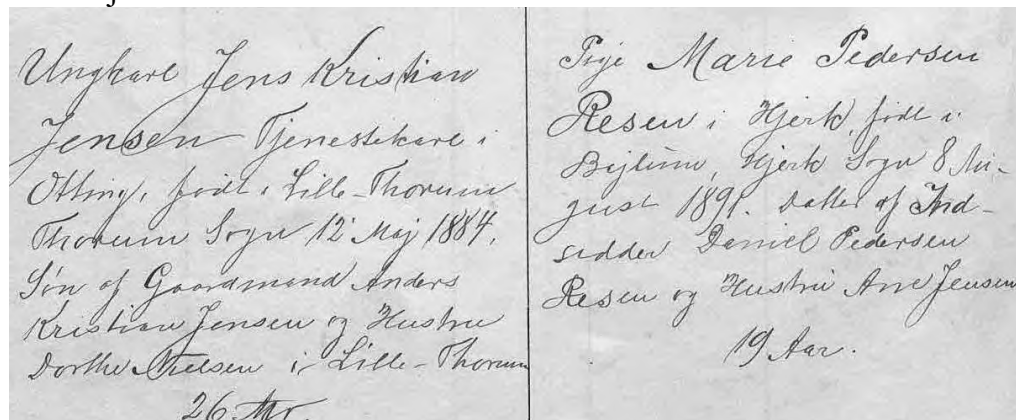 Ungkarl Jens Kristian
Jensen Tjenestekarl i
Otting, født i Lille-Thorum
Thorum Sogn 12 Maj 1884.
Søn af Gaardmand Anders
Kristian Jensen og Hustru
Dorthe Nielsen i Lille-Thorum
26 Aar.
Pige Marie Pedersen
Resen i Hjerk, født i
Bejlum, Hjerk Sogn 8 Au-
gust 1891. Datter af Ind-
sidder Daniel Pedersen
Resen og Hustru Ane Jensen
19 Aar.